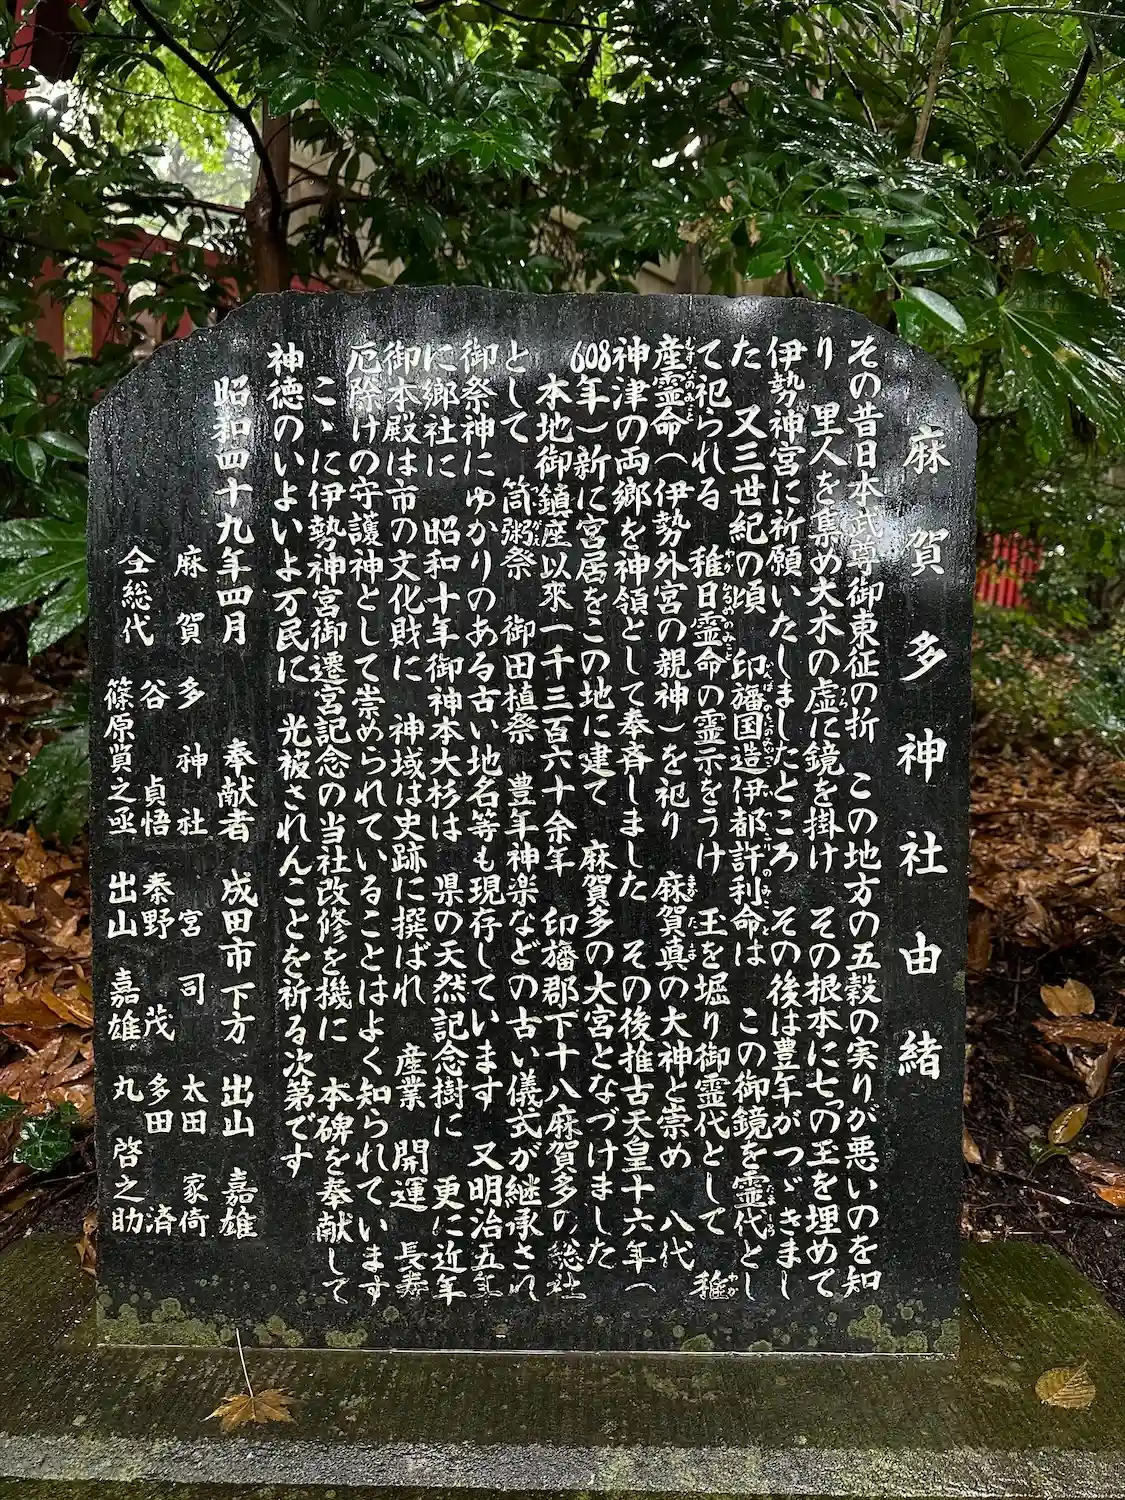 麻賀多神社由緒
その昔日本武尊御東征の折　この地方の五穀の実りが悪いのを知
り　里人を集め大木の虚に鏡を掛け　その根本に七つの玉を埋めて
伊勢神宮に祈願いたしましたところ　その後は豊年がつゞきまし
た　又三世紀の頃　印旛国造伊都許利命は　この御鏡を霊代とし
て祀られる　稚日霊命の霊示をうけ　玉を堀り御霊代として　稚
産霊命（伊勢外宮の親神）を祀り　麻賀眞の大神と崇め　八代
神津の両郷を神領として奉斉しました　その後推古天皇十六年（
608年）新に宮居をこの地に建て　麻賀多の大宮となづけました
本地御鎮座以來一千三百六十余年　印旛郡下十八麻賀多の総社
として　筒粥祭　御田植祭　豊年神楽などの古い儀式が継承され
御祭神にゆかりのある古い地名等も現存しています　又明治五年
に郷社に　昭和十年御神本大杉は　県の天然記念樹に　更に近年
御本殿は市の文化財に　神域は史跡に撰ばれ　産業　開運　長寿
厄除けの守護神として崇められていることはよく知られています
こゝに伊勢神宮御遷宮記念の当社改修を機に　本碑を奉献して
神徳のいよいよ万民に　光被されんことを祈る次第です
昭和四十九年四月　奉献者　成田市下方　出山　嘉雄
麻賀多神社　宮司　太田　家倚
仝総代　谷　貞悟　秦野　茂　多田　済
篠原賞之亟　出山　嘉雄　丸　啓之助